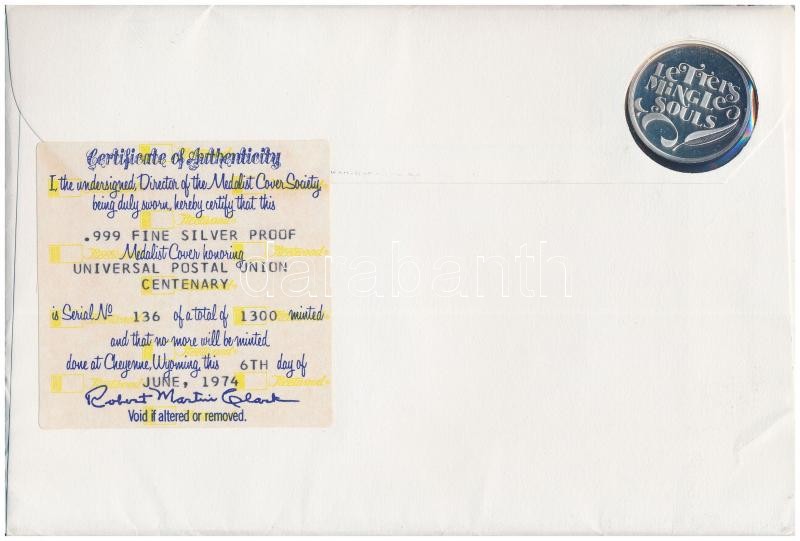 LeTTers
MiNGLe
SOULS
Certificate of Authenticity
I, the undersigned, Director of the Medalist Cover Society,
being duly sworn, hereby certify that this
.999 FINE SILVER PROOF
Medalist Cover honoring
UNIVERSAL POSTAL UNION
CENTENARY
is Serial Nº 136 of a total of 1300 minted
and that no more will be minted
done at Cheyenne, Wyoming, this 6TH day of
JUNE, 1974
Robert Martin Clark
Void if altered or removed.
darabanth